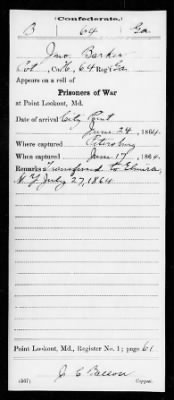 (Confederate.)
B 64 Ga
Jno. Barker
Co. H, 64 Reg't Ga.
Appears on a roll of
Prisoners of War
at Point Lookout, Md.
Date of arrival City Point
June 24, 1864
Where captured Petersburg
When captured June 17, 1864.
Remarks Transferred to Elmira
N.Y. July 27, 1864
Point Lookout, Md., Register No. 1; page 61
J. C.
(367) Copyist.